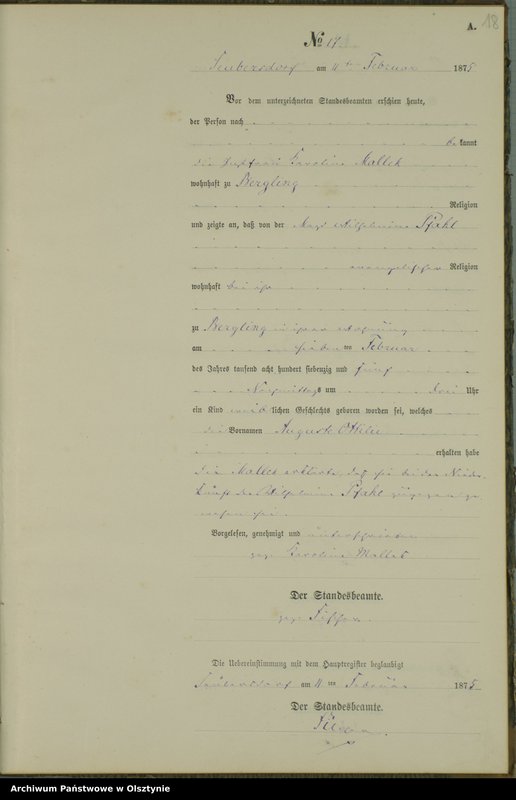 A. 18
№ 17
Seubersdorf am 11ten Februar 1875
Vor dem unterzeichneten Standesbeamten erschien heute,
der Person nach
be kannt
die Karoline Mallek
wohnhaft zu Bergling
Religion
und zeigte an, daß von der Magd Wilhelmine Pfahl
evangelischer Religion
wohnhaft bei ihr
zu Bergling in ihrer Wohnung
am ten Februar
des Jahres tausend acht hundert siebenzig und fünf
Nachmittags um drei Uhr
ein Kind weiblichen Geschlechts geboren worden sei, welches
die Vornamen Auguste Ottilie
erhalten habe
Die Mallek erklärte, daß sie bei der Nieder
kunft der Wilhelmine Pfahl zugegen ge
wesen sei.
Vorgelesen, genehmigt und unterschrieben
gez. Karoline Mallek
Der Standesbeamte.
gez.
Die Uebereinstimmung mit dem Hauptregister beglaubigt
Seubersdorf am 11ten Februar 1875
Der Standesbeamte.
Archiwum Państwowe w Olsztynie